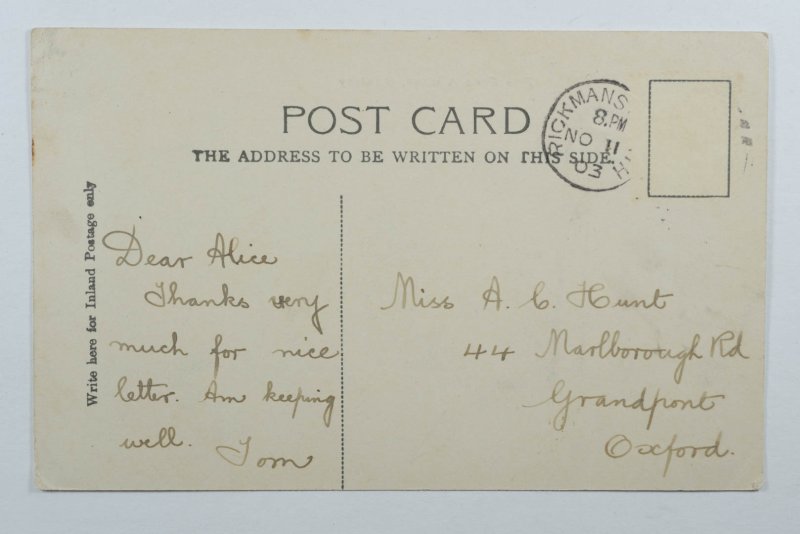 POST CARD
THE ADDRESS TO BE WRITTEN ON THIS SIDE.
RICKMANS
8.PM
NO 11
03
Write here for Inland Postage only
Dear Alice
Thanks very
much for nice
letter. Am keeping
well.
Tom
Miss A. C. Hunt
44 Marlborough Rd
Grandpont
Oxford.